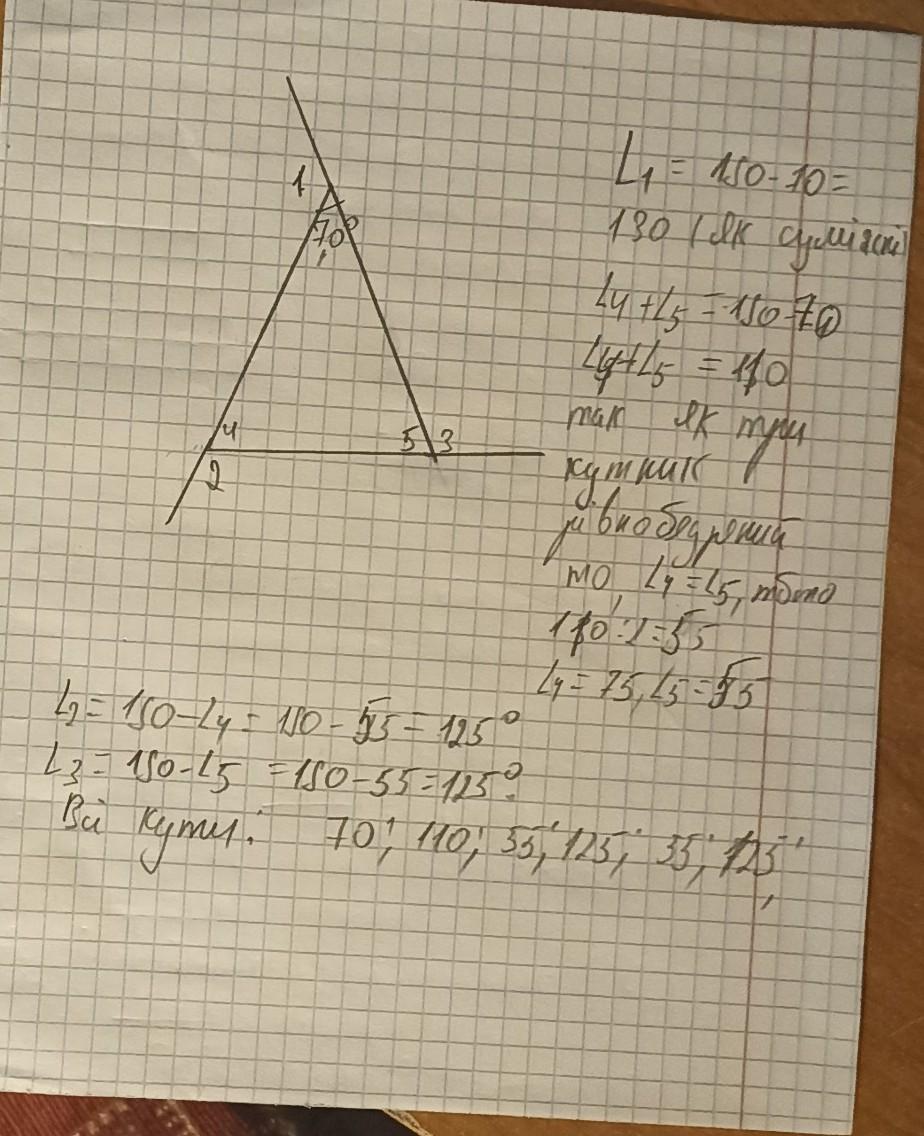 1
70°
4
5 3
2
L1 = 180-70=
130 (як суміжні)
L4+L5 = 180-70
L4+L5 = 110
так як три
кутник
рівнобедрений
то, L4=L5, тобто
110:2=55
L4= 75, L5=55
L2= 180-L4= 180-55= 125°
L3= 180-L5 =180-55=125°.
Всі кути: 70°; 110°; 55°; 125°; 55°; 125°